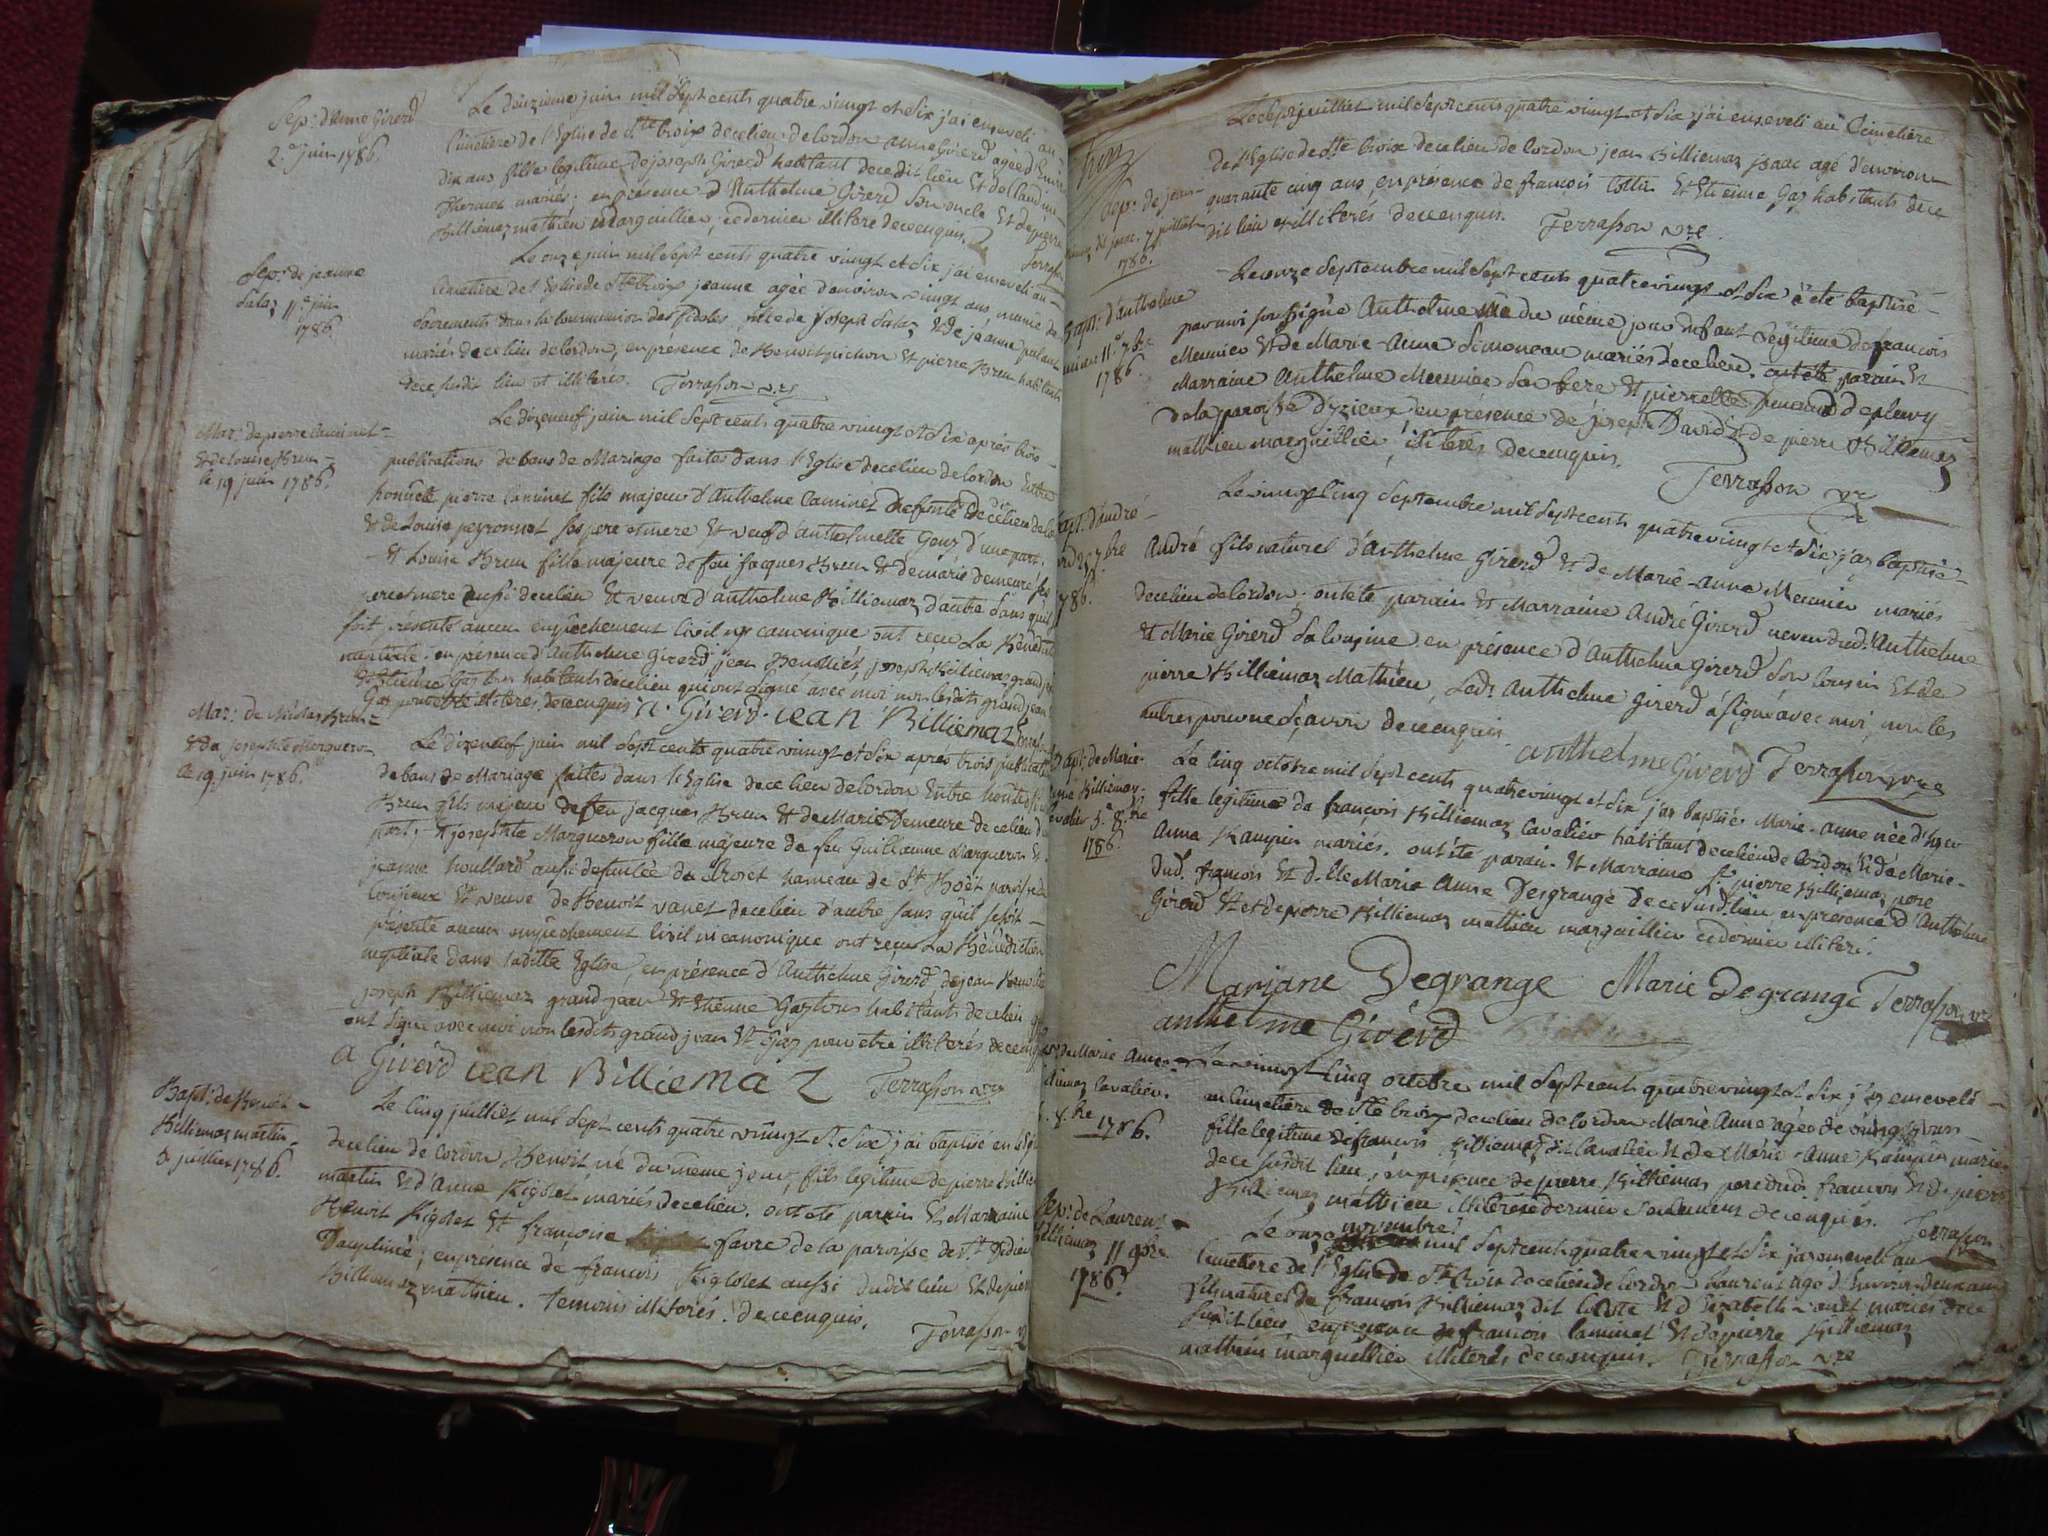 Sep: d'Anne Girerd
2.e juin 1786.
Le deuzieme juin mil Sept cents quatre vingt et Six j'ai enseveli au
Cimetiere de l'Eglise de Ste Croix de ce lieu de Cordon anne Girerd agée d'Envi
dix ans fille legitime de joseph Girerd habitant de ce dit lieu Et de
mariés; en présence d'Anthelme Girerd Son oncle Et de pierre
Billiemaz mathieu marguillier, ce dernier illitere de ce enquis.
Terrasson
Sep: de jeanne
Salaz 11.e juin
1786.
Le onze juin mil Sept cents quatre vingt et Six j'ai enseveli au
Cimetiere de l'Eglise de Ste Croix jeanne agée d'environ vingt ans, munie des
Sacrements dans la Communion des fideles, fille de joseph Salaz & de jeanne
mariés de ce lieu de Cordon, en présence de Benoit pichon Et pierre Brun habitants
de ce Susdit lieu et illiterés. Terrasson vre
Mar: de pierre Caminet
Et de Louise Brun
le 19 juin 1786.
Le dizeneuf juin mil Sept cents quatre vingt et Six après trois
publications de bans de Mariage faites dans l'Eglise de ce lieu de Cordon Entre
honnête pierre Caminet fils majeur d'Anthelme Caminet de ce lieu de
Et de Louise peyronnet Ses pere et mere Et veuf d'anthelmette Genz d'une part.
Et Louise Brun fille majeure de feu jacques Brun Et de marie demeure Ses
pere et mere aussi de ce lieu Et veuve d'anthelme Billiemaz d'autre Sans qu'il
soit présenté aucun empechement Civil ny canonique ont reçu La Bénédict
nuptiale; en présence d'Anthelme Girerd jean Benoit, joseph Billiemaz grand jean
Et Etienne Gaz tous habitants de ce lieu qui ont Signé avec moi non lesdits grand jean
Gaz pour etre illiterés de ce enquis A. Girerd. jean Billiemaz
Mar: de Nicolas Brun
& de josephte Margueron
le 19 juin 1786.
Le dizeneuf juin mil Sept cents quatre vingt et Six après trois publicat
de bans de Mariage faites dans l'Eglise de ce lieu de Cordon Entre honnete
Brun fils majeur de feu jacques Brun Et de Marie Demeure de ce lieu d'u
part, Et josephte Margueron fille majeure de feu Guillaume Margueron Et
jeanne houllard aussi defuntée de hameau de St Boët paroisse de
Et veuve de Benoit vanet de ce lieu d'autre Sans qu'il se soit
présenté aucun empêchement Civil ni canonique ont reçu La Bénédiction
nuptiale dans ladite Eglise, en présence d'Anthelme Girerd de jean Benoit
joseph Billiemaz grand jean Et Etienne Gaz tous habitants de ce lieu
ont Signé avec moi non lesdits grand jean Et Gaz pour etre illiterés de ce enq
A Girerd jean Billiemaz Terrasson vre
Bapt: de Benoit
Billiemaz martin
5 juillet 1786.
Le Cinq juilliet mil Sept cents quatre vingt Et Six j'ai baptisé en l'Egl
de ce lieu de Cordon Benoit né du même jour, fils legitime de pierre Billie
martin Et d'Anne Rigolet mariés de ce lieu. ont été parrain Et Marraine
Benoit Rigolet Et françoise favre de la paroisse de St Didier
Dauphiné; en présence de francois Rigolet aussi dudit lieu Et de pierre
Billiemaz mathieu. temoins illiterés. de ce enquis.
Terrasson
Sep: de jean
Billiemaz dit 7 juilliet
1786.
Le Sept juilliet mil Sept cents quatre vingt et Six j'ai enseveli au Cimetiere
de l'Eglise de Ste Croix de ce lieu de Cordon jean Billiemaz agé d'environ
quarante cinq ans, en présence de françois Cottin Et Etienne Gaz habitants de ce
dit lieu et illiterés de ce enquis. Terrasson vre.
Bapt: d'anthelme
11.e 7bre
1786.
Le onze Septembre mil Sept cents quatre vingt et Six à eté baptisé
par moi Soussigné Anthelme né du même jour enfant Légitime de françois
Meunier Et de Marie-Anne Simoneau mariés de ce lieu. ont été parrain Et
Marraine Anthelme Meunier Son frere Et pierrette
de la paroisse d'yzieux en présence de joseph David Et de pierre Billiemaz
mathieu marguillier, illiterés de ce enquis.
Terrasson vre
Bapt: d'andré
25 7bre
1786.
Le vingt Cinq Septembre mil Sept cents quatre vingt et Six j'ay baptisé
André fils naturel d'Anthelme Girerd Et de Marie-Anne Meunier mariés
de ce lieu de Cordon; ont été parain Et Marraine André Girerd neveu dud. Anthelme
Et Marie Girerd Sa Cousine en présence d'Anthelme Girerd Son Cousin Et de
pierre Billiemaz Mathieu, Ledt Anthelme Girerd à Signé avec moi, non les
autres pour ne Sçavoir de ce enquis.
anthelme Girerd Terrasson vre
Bapt: de Marie
anne Billiemaz
Cavalier 5. 8bre
1786.
Le Cinq octobre mil Sept cents quatre vingt et Six j'ay baptisé Marie-anne née d'hyer
fille legitime de françois Billiemaz Cavalier habitant de ce lieu de Cordon Et de Marie
Anne Rampin mariés. ont été parain Et Marraine Sr pierre Billiemaz pere
dud. françois Et d.lle Marie Anne Desgrange de ce Susd. lieu en présence d'Anthelme
Girerd Et et de pierre Billiemaz mathieu marguillier ce dernier illiteré.
Marjane Degrange Marie Degrange Terrasson vre
anthelme Girerd
Sep: de Marie Anne
Billiemaz Cavalier.
8.bre
1786.
Le vingt Cinq octobre mil Sept cent quatre vingt et Six j'ay enseveli
au Cimetiere de Ste Croix de ce lieu de Cordon Marie Anne agée de vingt jours
fille legitime de francois Billiemaz dit Cavalier Et de Marie-Anne Rampin mariés
de ce Susdit lieu, en présence de pierre Billiemaz pere dud. françois Et de pierre
Billiemaz mathieu illiteré ce dernier Seulement de ce enquis.
Terrasson
Sep: de Laurent
Billiemaz 11 9bre
1786.
Le onze novembre mil Sept cents quatre vingt et Six j'ay enseveli au
Cimetiere de l'Eglise de Ste Croix de ce lieu de Cordon Laurent agé d'Environ deux ans
fils naturel de françois Billiemaz dit Et d'Elizabeth mariés de ce
Susdit lieu, en présence de francois Caminet Et de pierre Billiemaz
mathieu marguellier illiterés de ce enquis. Terrasson vre